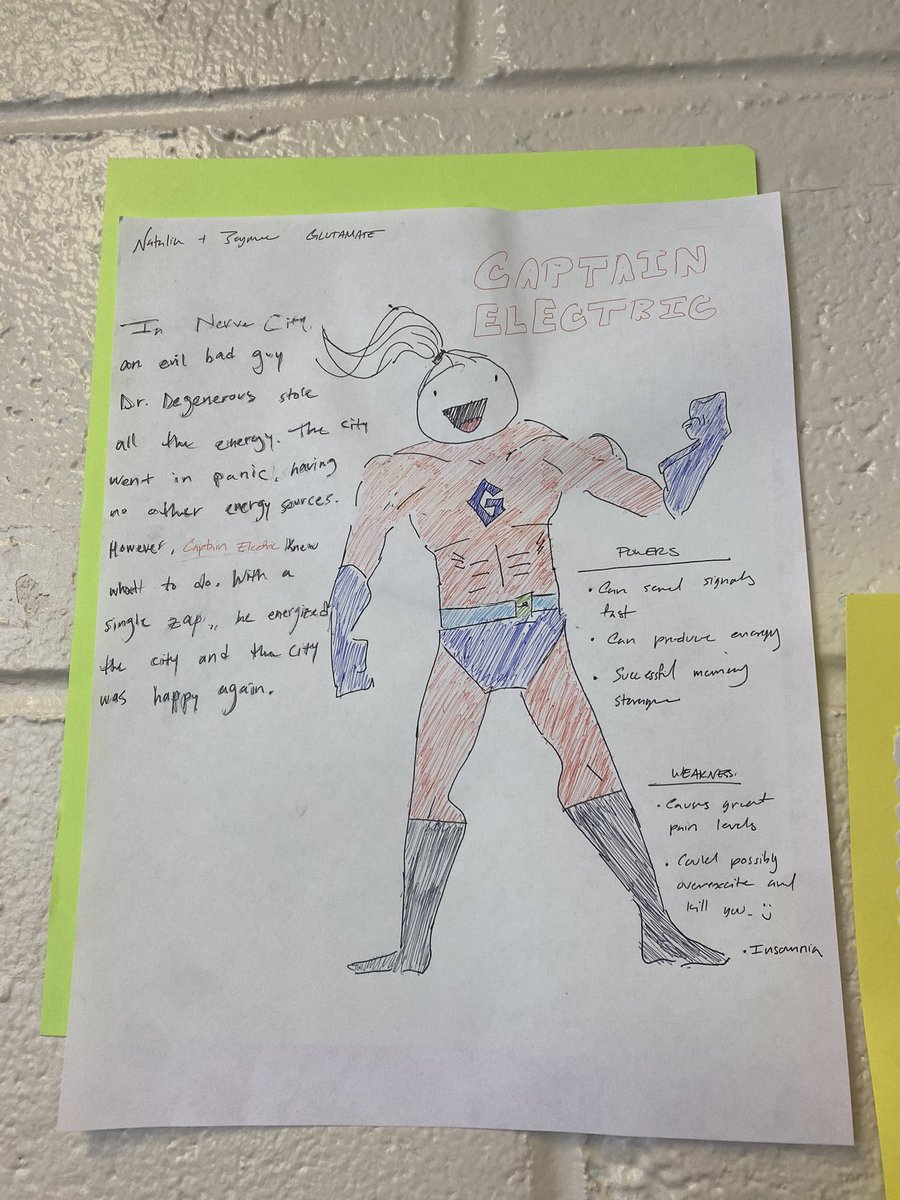 Natalia + GLUTAMATE
CAPTAIN
ELECTRIC
In Nerve City,
an evil bad guy
Dr. Degenerous stole
all the energy. The city
went in panic, having
no other energy sources.
However, Captain Electric knew
what to do. With a
single zap, he energized
the city and the city
was happy again.
G
POWERS
• Can send signals
fast
• Can produce energy
• Successful memory
storage
WEAKNESS
• Causes great
pain levels
• Could possibly
overexcite and
kill you. :)
• Insomnia